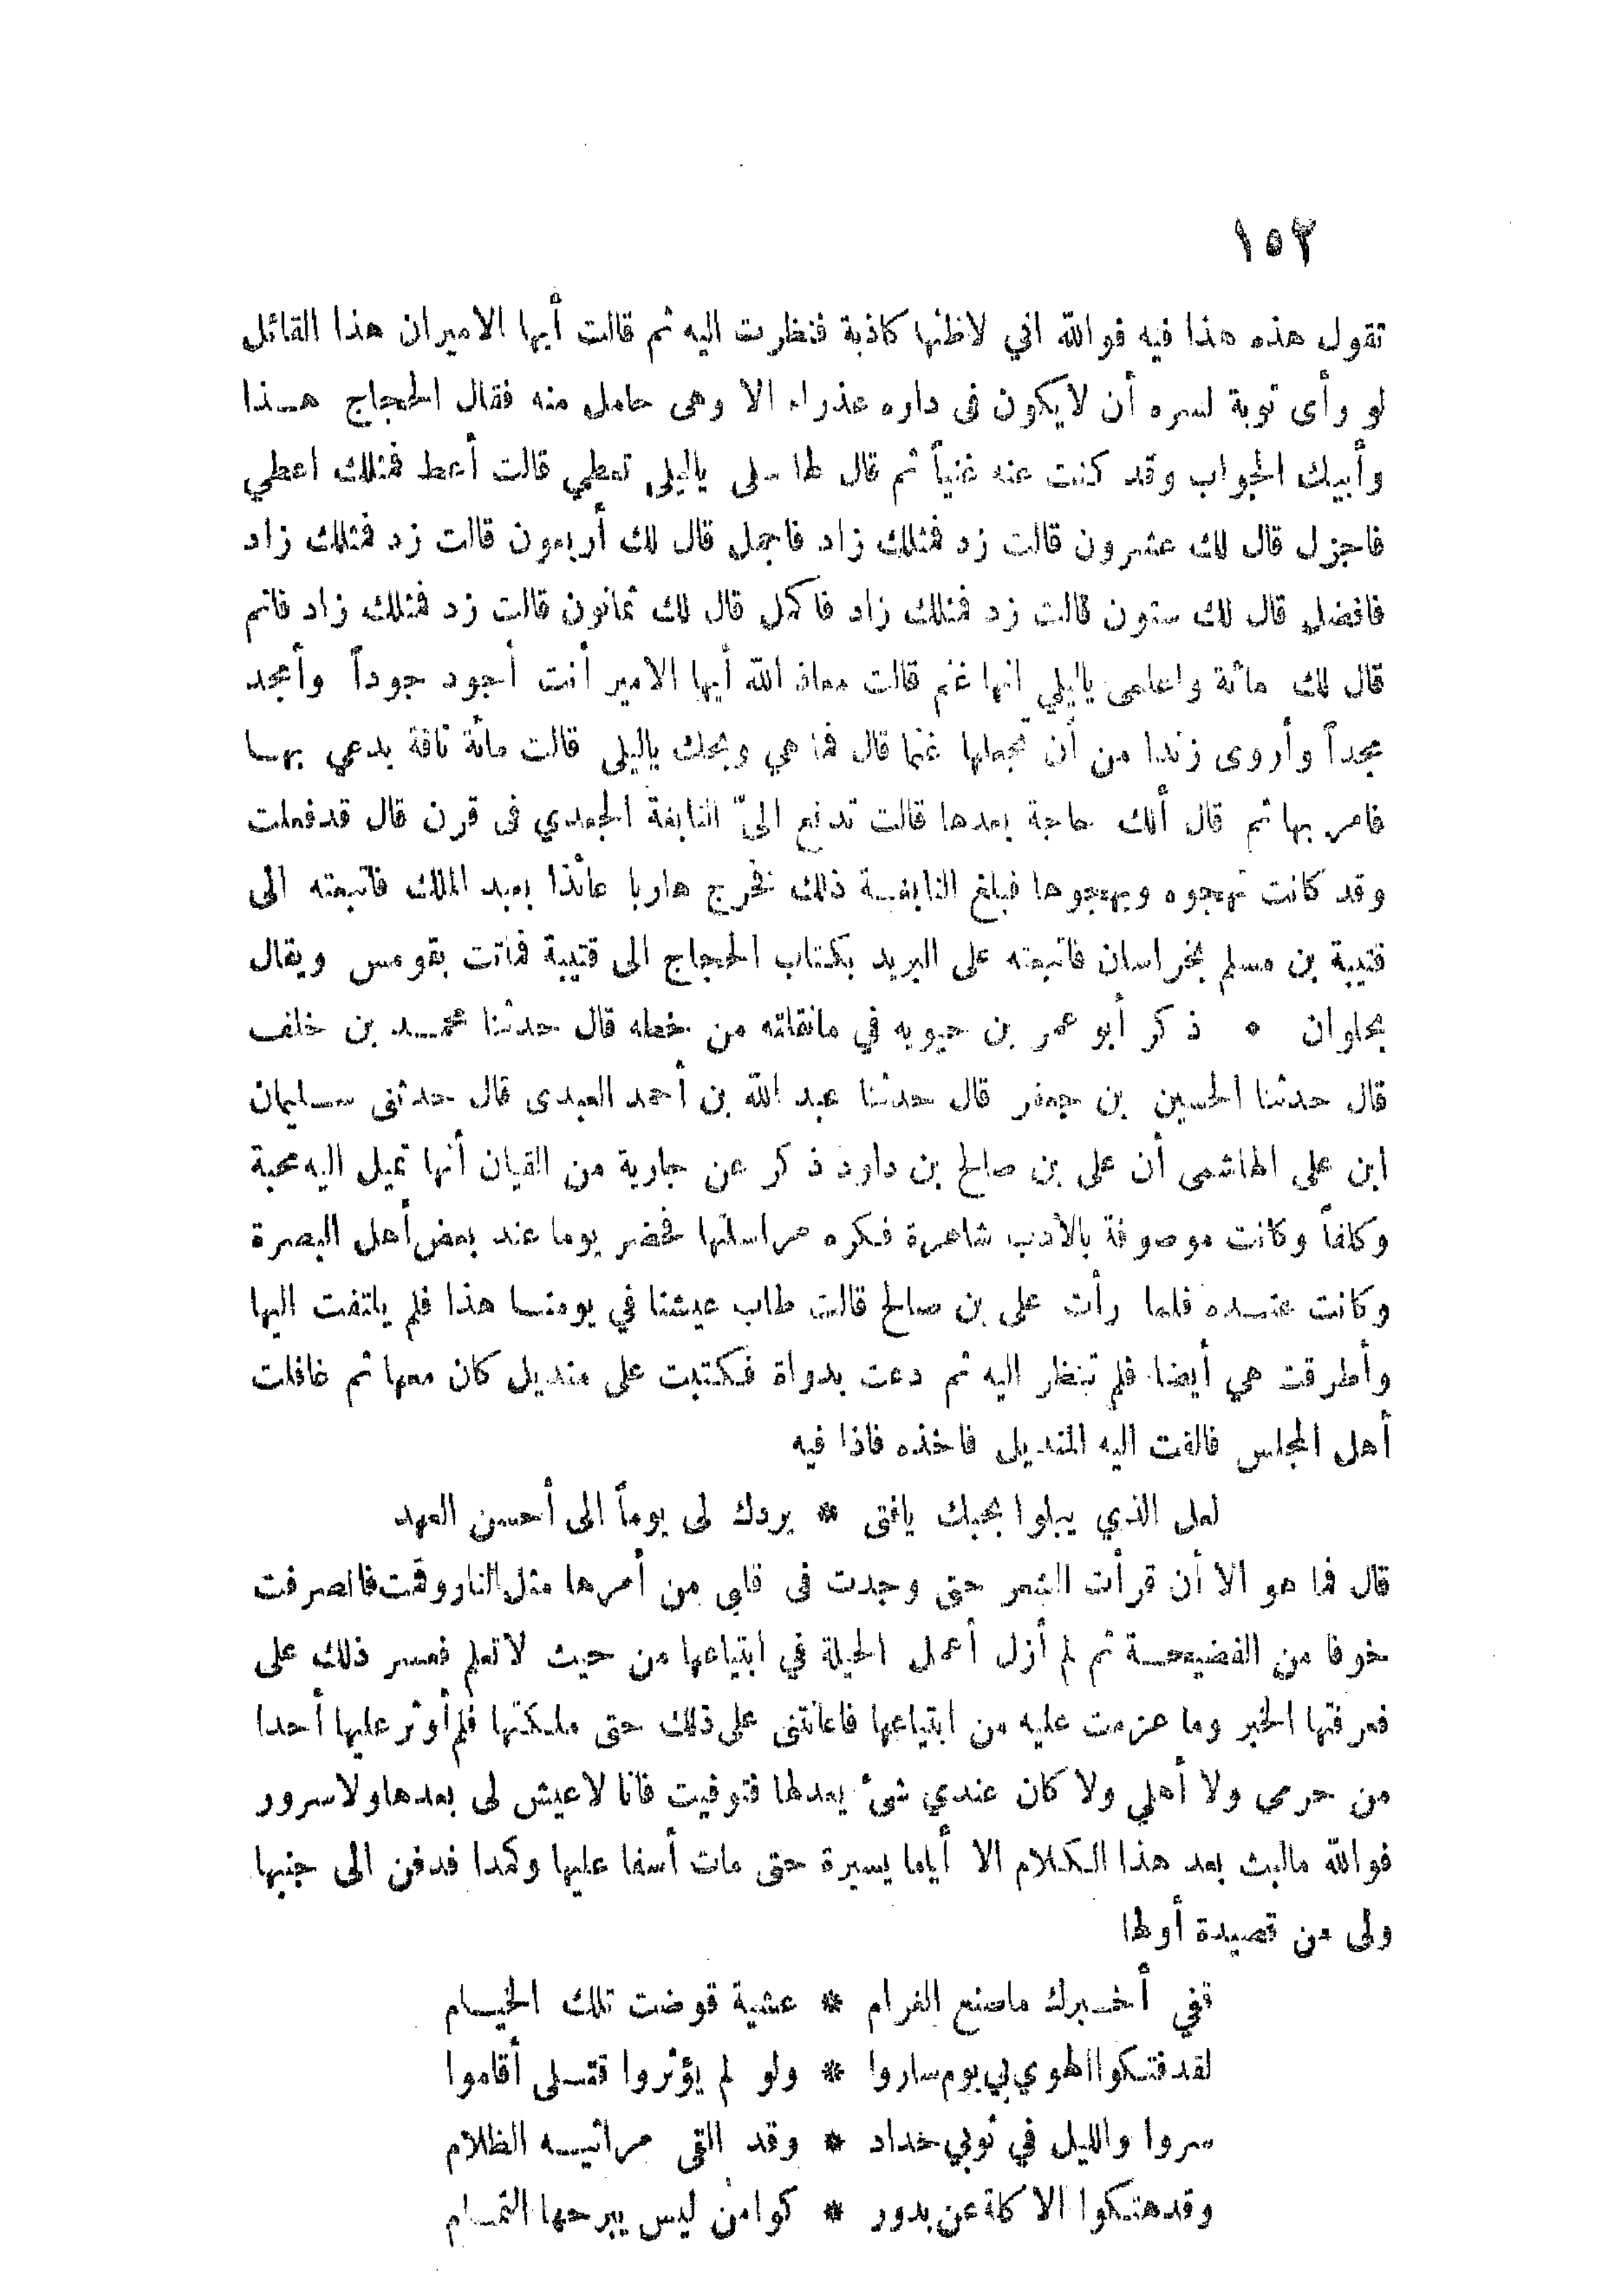 ١٥٢
تقول هذه هذا فيه فوالله اني لاظنها كاذبة فنظرت اليه ثم قالت أيها الامير ان هذا القائل
لو رأى توبة لسره أن لا يكون فى داره عذراء الا وهى حامل منه فقال الحجاج هـذا
وأبيك الجواب وقد كنت عنه غنياً ثم قال لها سلى ياليلى تعطي قالت أعط فمثلك اعطي
فاجزل قال لك عشرون قالت زد فمثلك زاد فاجمل قال لك أربعون قالت زد فمثلك زاد
فافضل قال لك ستون قالت زد فمثلك زاد فاكمل قال لك ثمانون قالت زد فمثلك زاد فاتم
قال لك مائة واعلمى ياليلي انها غنم قالت معاذ الله أيها الامير أنت أجود جوداً وأمجد
مجداً وأروى زندا من أن تجعلها غنما قال فما هي ويحك ياليلى قالت مائة ناقة بدعي بهـا
فامر بها ثم قال ألك حاجة بعدها قالت تدفع الىّ النابغة الجعدي فى قرن قال قد فعلت
وقد كانت تهجوه ويهجوها فبلغ النابغـة ذلك فخرج هاربا عائذا بعبد الملك فاتبعته الى
قتيبة بن مسلم بخراسان فاتبعته على البريد بكتاب الحجاج الى قتيبة فماتت بقومس ويقال
بحلوان * ذكر أبو عمر بن حيويه في مانقلته من خطه قال حدثنا محمـد بن خلف
قال حدثنا الحسين بن جعفر قال حدثنا عبد الله بن أحمد العبدى قال حدثنى سـليمان
ابن على الهاشمى أن على بن صالح بن داود ذكر عن جارية من القيان أنها تميل اليه محبة
وكلفاً وكانت موصوفة بالادب شاعرة فكره مراسلتها فحضر يوما عند بعض أهل البصرة
وكانت عنـده فلما رأت على بن صالح قالت طاب عيشنا في يومنـا هذا فلم يلتفت اليها
وأطرقت هي أيضا فلم تنظر اليه ثم دعت بدواة فكتبت على منديل كان معها ثم غافلت
أهل المجلس فالقت اليه المنديل فاخذه فاذا فيه
لعل الذي يبلوا بحبك يافتى * يردك لى يوماً الى أحسن العهد
قال فما هو الا أن قرأت الشعر حتى وجدت فى قلبى من أمرها مثل النار وقمت فانصرفت
خوفا من الفضيحـة ثم لم أزل أعمل الحيلة في ابتياعها من حيث لا تعلم فعسر ذلك على
فعرفتها الخبر وما عزمت عليه من ابتياعها فاعانتنى على ذلك حتى ملكتها فلم أوثر عليها أحدا
من حرمى ولا أهلي ولا كان عندي شئ يعدلها فتوفيت فانا لا عيش لى بعدها ولا سرور
فوالله مالبث بعد هذا الكلام الا أياما يسيرة حتى مات أسفا عليها وكمدا فدفن الى جنبها
ولى من قصيدة أولها
قفي أخـبرك ماصنع الغرام * عشية قوضت تلك الخيـام
لقد فتكوا الهوي بي يوم ساروا * ولو لم يؤثروا قتـلى أقاموا
سروا والليل في ثوبي حداد * وقد القى مراثيـه الظلام
وقد هتكوا الاكلة عن بدور * كوامن ليس يبرحها التمـام